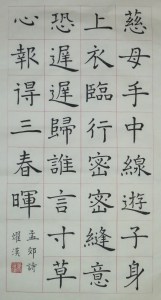 慈母手中線遊子身
上衣臨行密密縫意
恐遲遲歸誰言寸草
心報得三春暉
孟郊詩